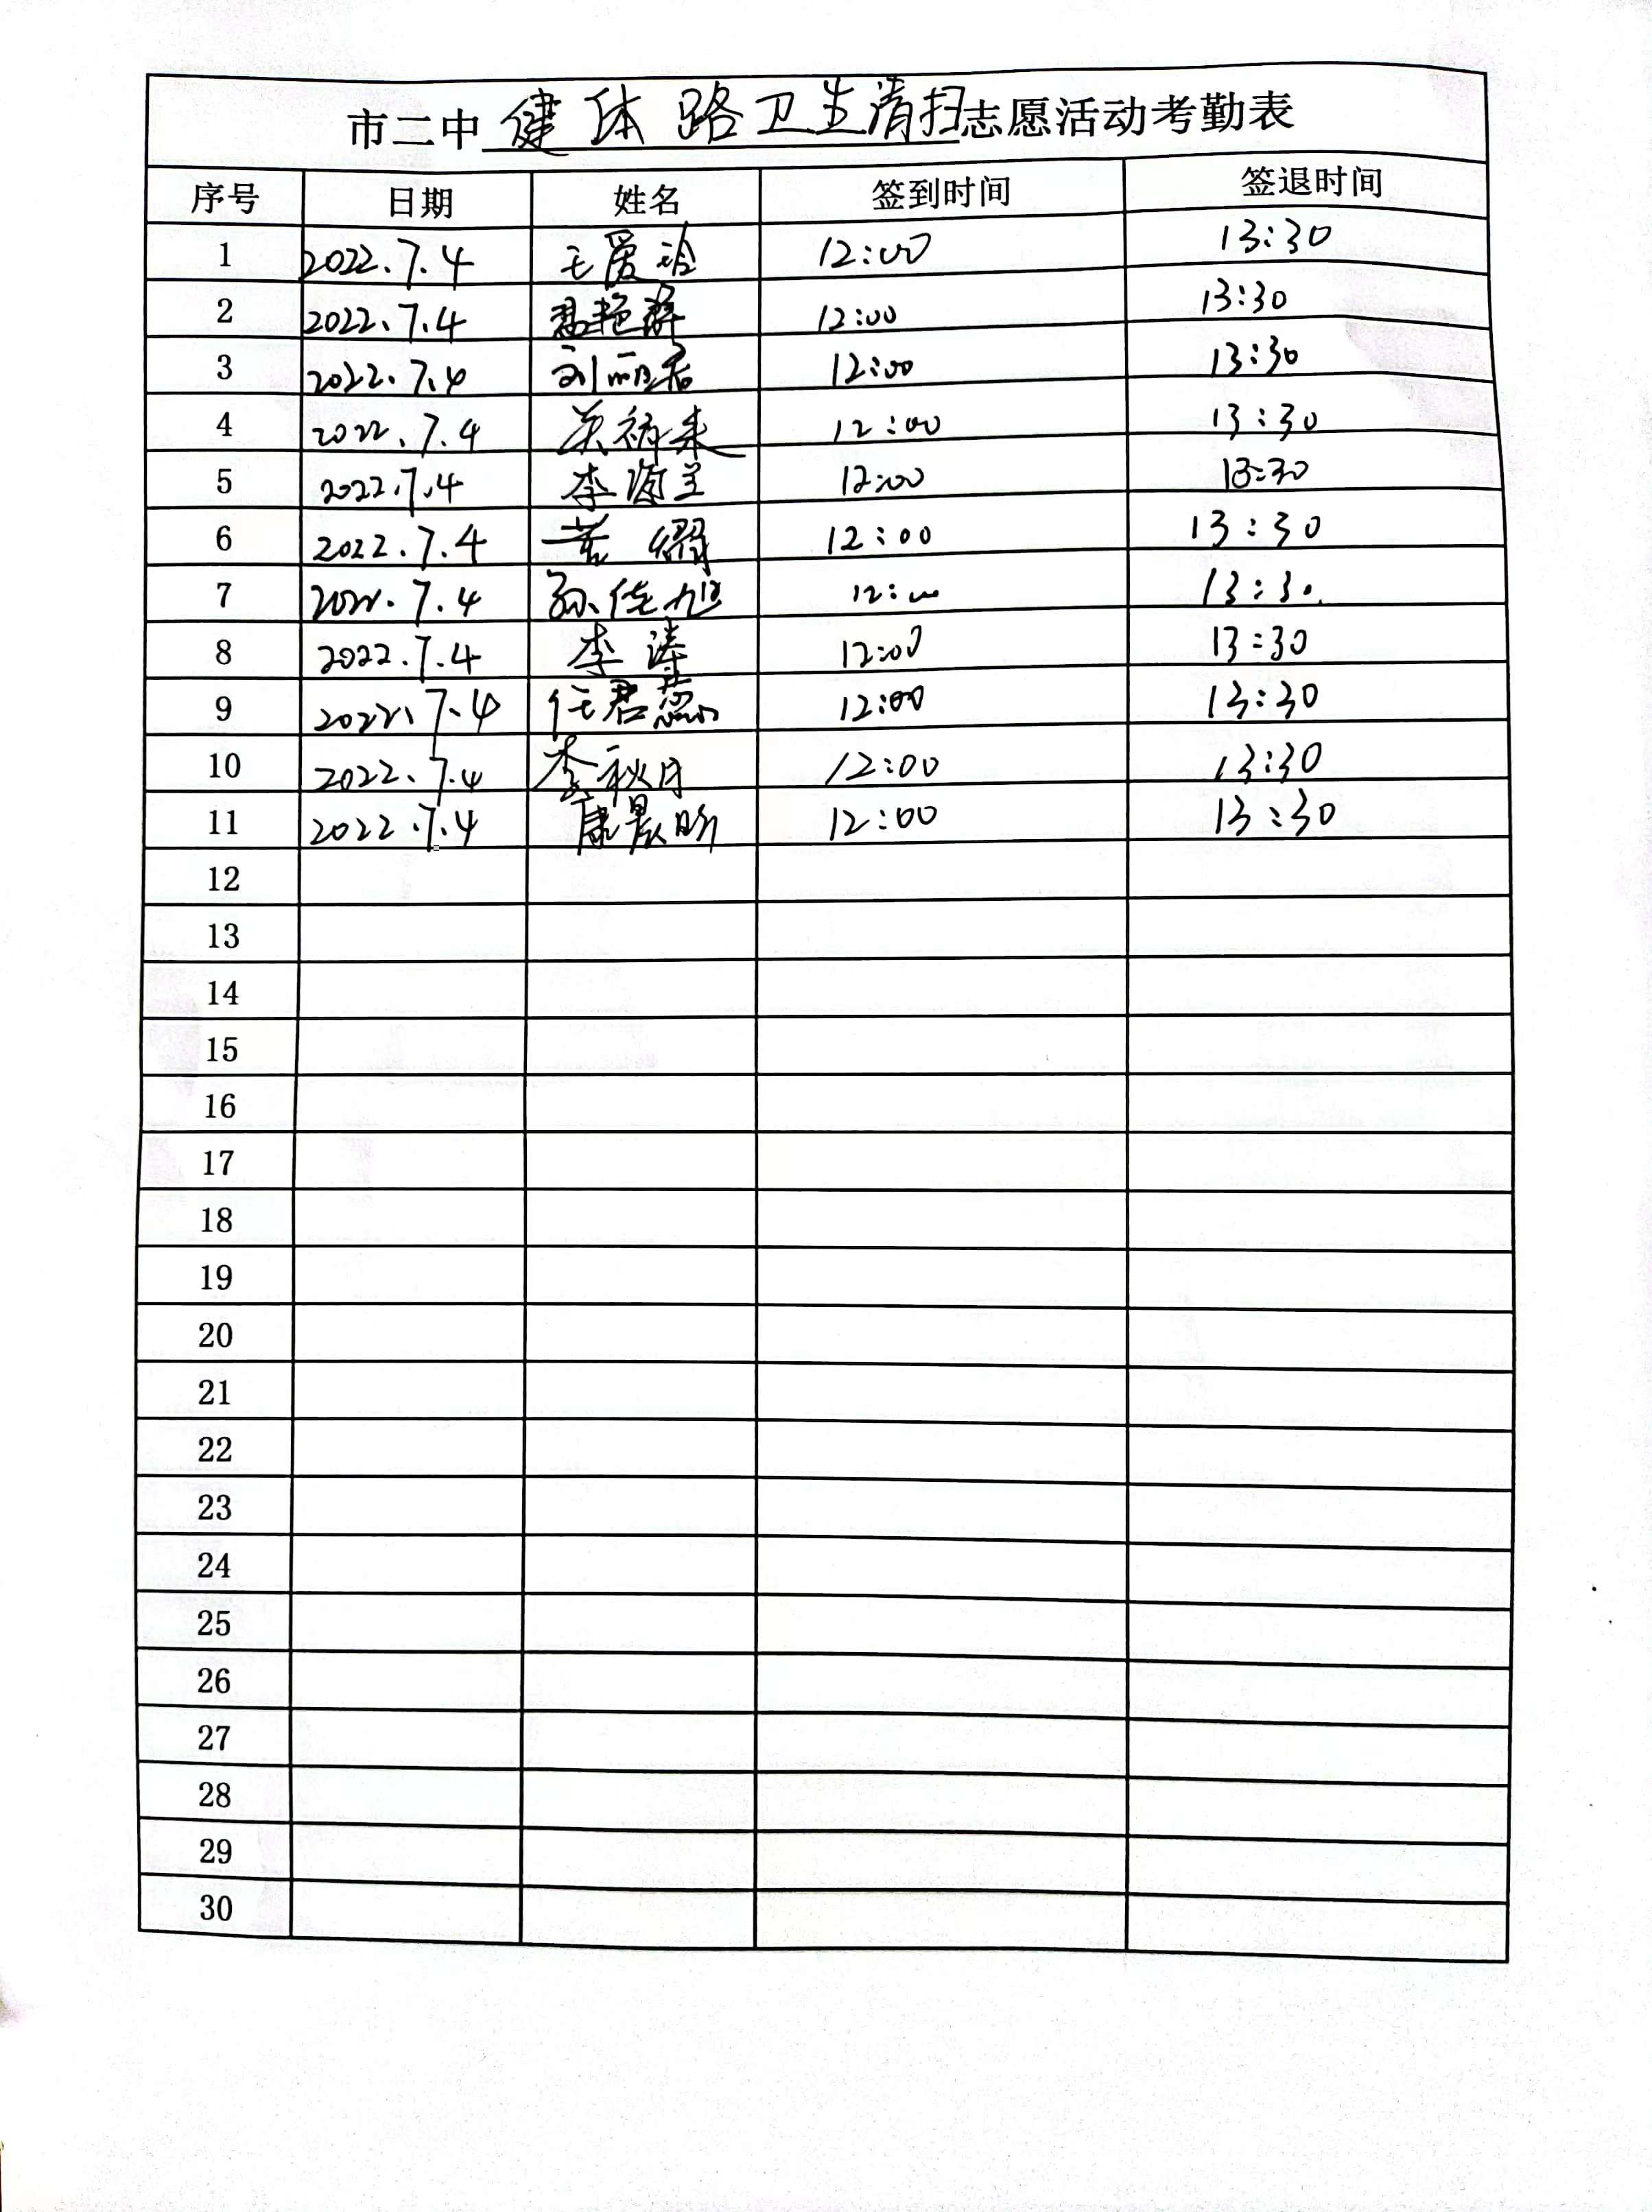 市二中健体路卫生清扫志愿活动考勤表
序号 日期 姓名 签到时间 签退时间
1 2022.7.4 王爱玲 12:00 13:30
2 2022.7.4 12:00 13:30
3 2022.7.4 刘丽君 12:00 13:30
4 2022.7.4 12:00 13:30
5 2022.7.4 李海兰 12:00 13:30
6 2022.7.4 12:00 13:30
7 2022.7.4 孙佳旭 12:00 13:30
8 2022.7.4 李涛 12:00 13:30
9 2022.7.4 任君蕊 12:00 13:30
10 2022.7.4 李秋月 12:00 13:30
11 2022.7.4 康晨昕 12:00 13:30
12
13
14
15
16
17
18
19
20
21
22
23
24
25
26
27
28
29
30